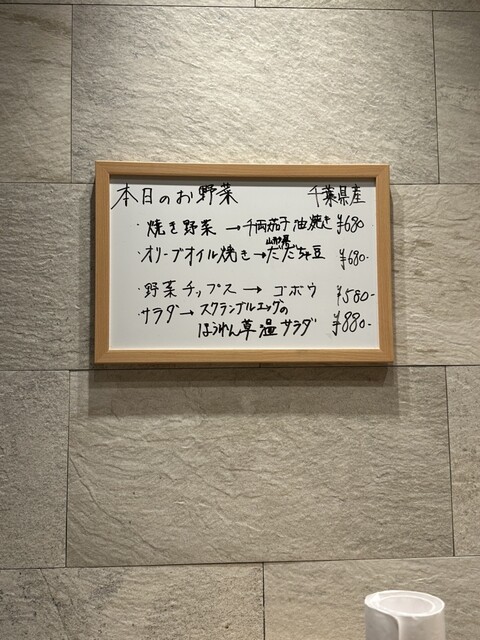 本日のお野菜 千葉県産
・焼き野菜 → 千両茄子 油焼き ¥680
・オリーブオイル焼き → 山形県 だだちゃ豆 ¥680-
・野菜チップス → ゴボウ ¥580-
・サラダ → スクランブルエッグの
ほうれん草 温サラダ ¥880-